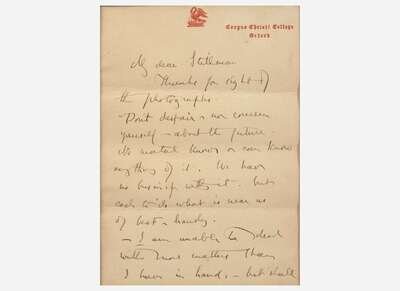 Corpus Christi College
Oxford
My dear Stillman
Thanks for sight of
the photographs.
Don't despair & nor concern
yourself about the future.
No mortal knows or can know
anything of it. We have
no business with it. but
each to do what is near us
& handy.
– I am unable to deal
with more matters than
I have in hand, – but shall